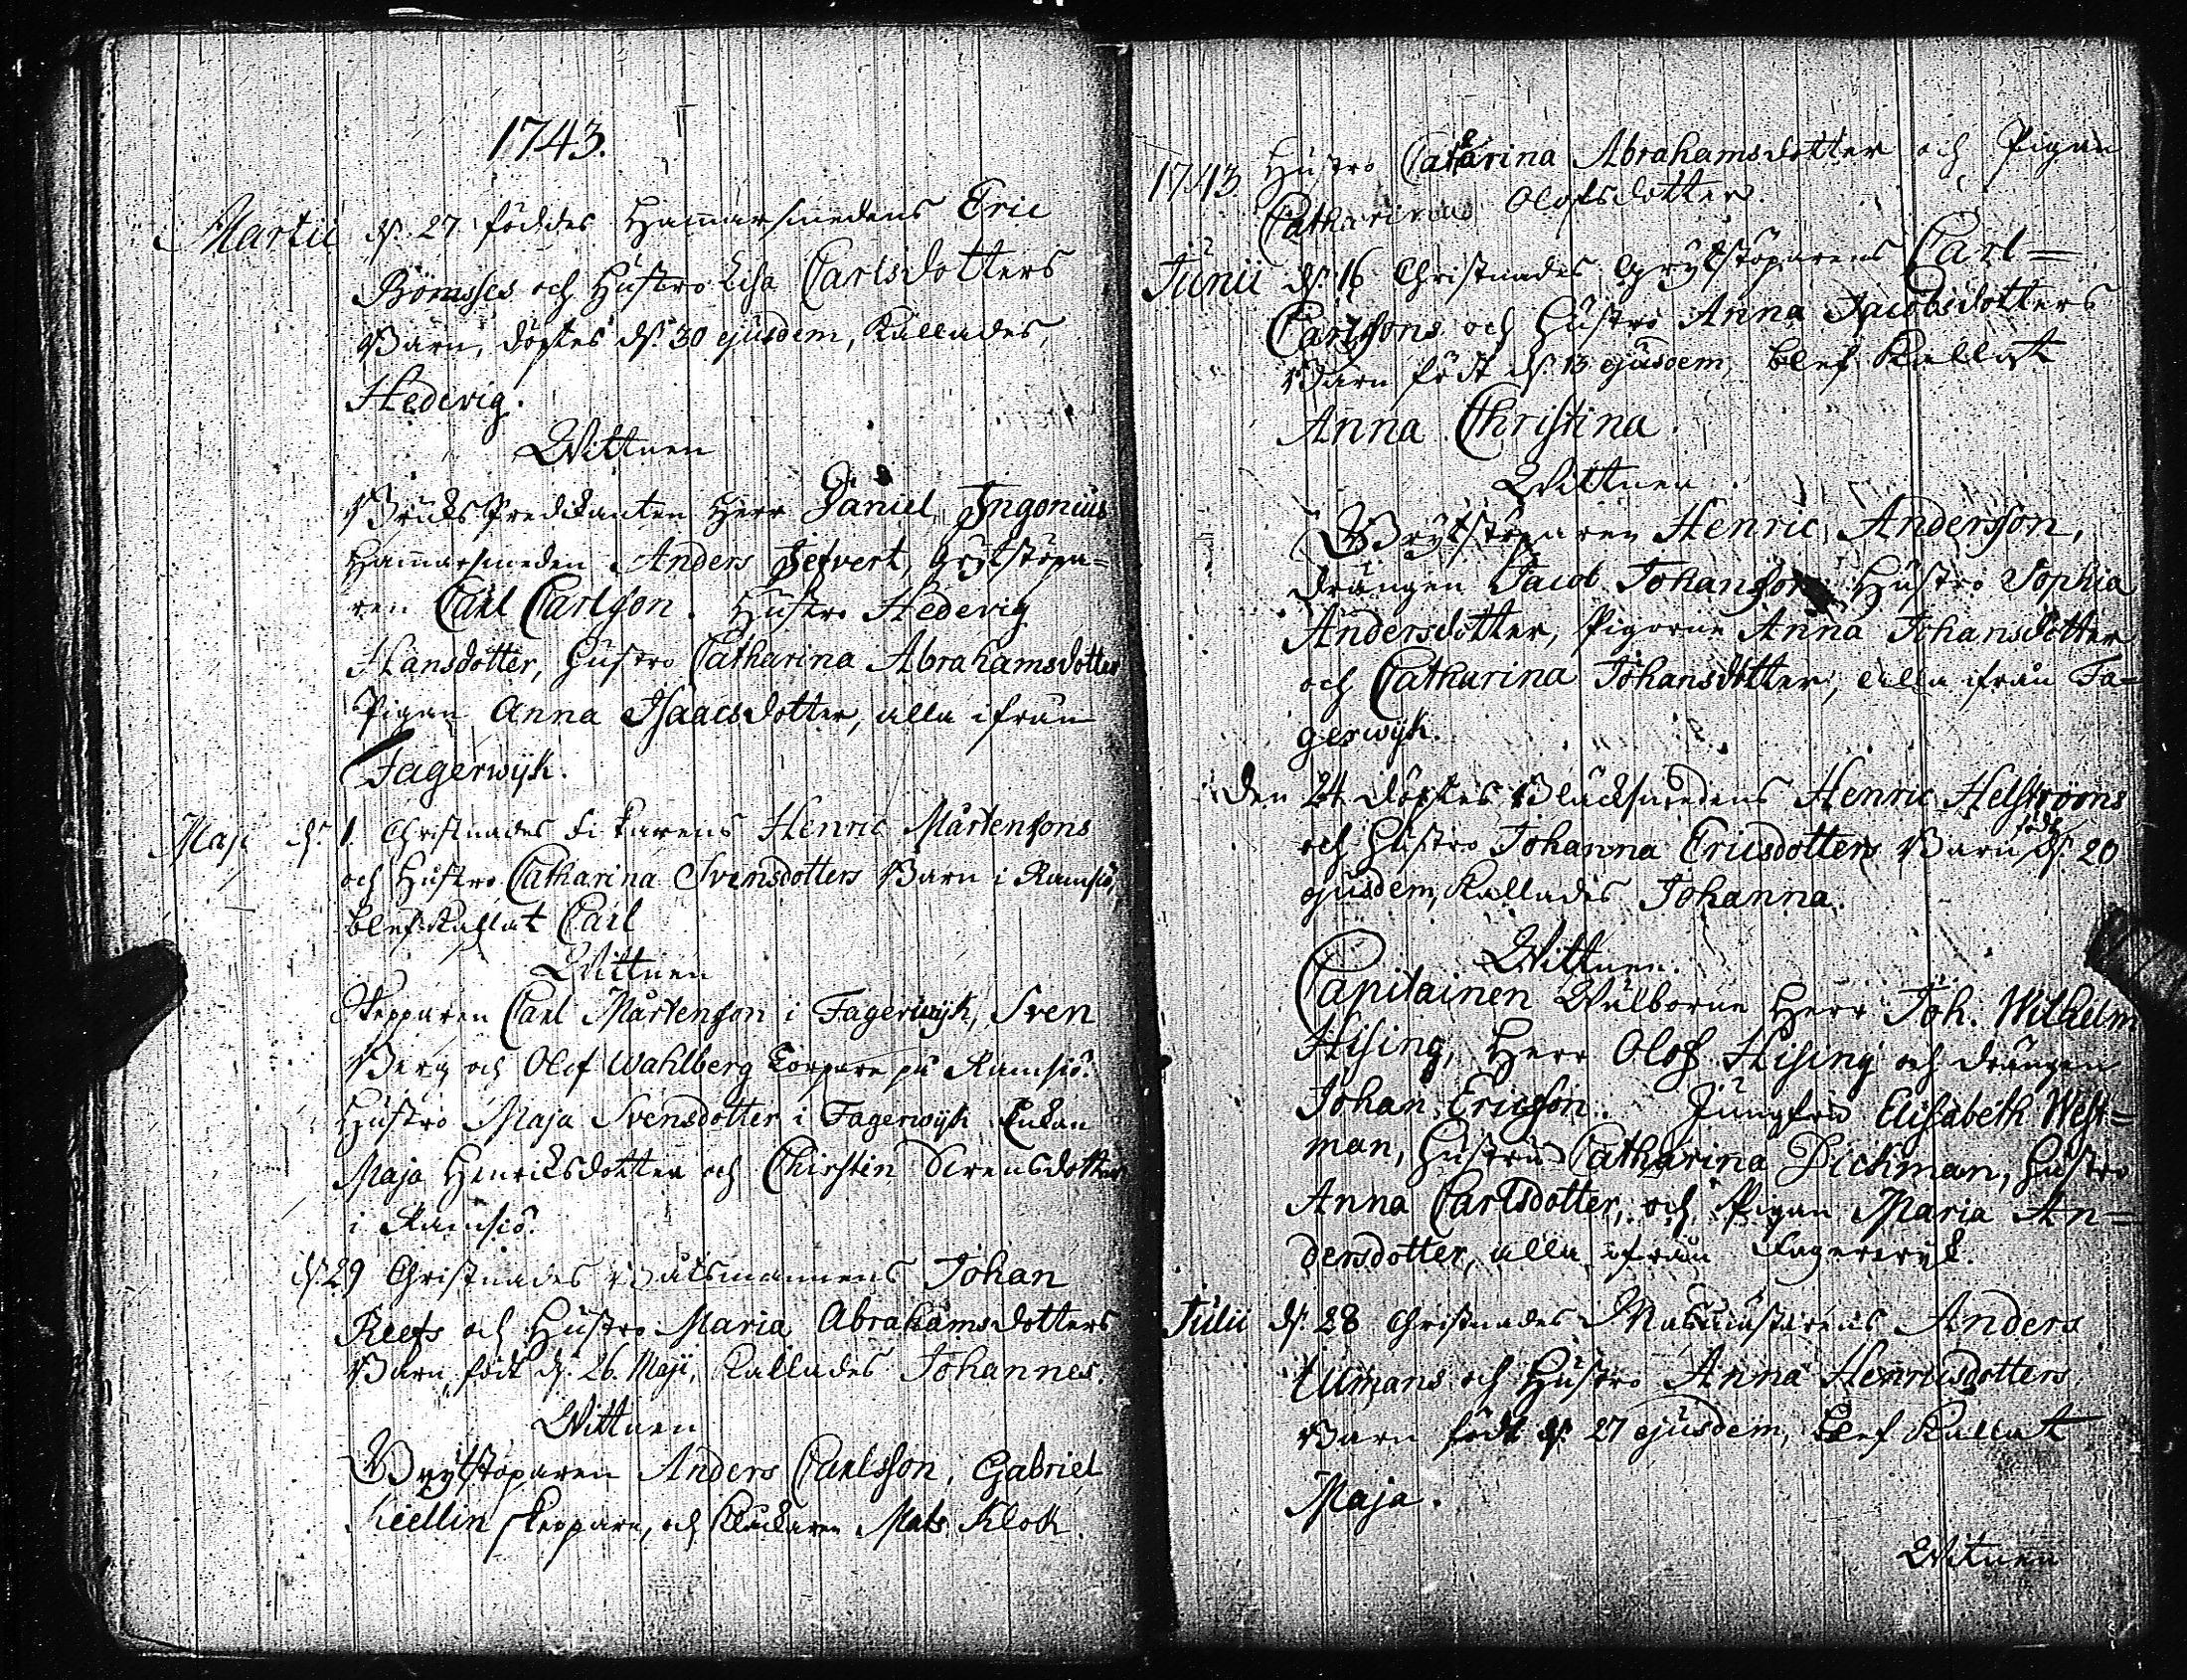 1743.
Martii d. 27 föddes Hammarsmedens Eric
Bömsses och Hustro Lisa Carlsdotters
Barn, döptes d. 30 ejusdem, kallades,
Hedevig.
Wittnen
Bruks Predikanten Herr Daniel Ingonius
Hammarsmeden Anders Sefvert, Grytstöpa=
ren Carl Carlson. Hustro Hedevig
Hansdotter, Hustro Catharina Abrahamsdotter
Pigan Anna Isaacsdotter, alla ifrån
Fagerwijk.
Maji d. 1. Christnades Fiskarens Henric Mårtensons
och Hustro Catharina Svensdotters Barn i Ramsiö,
blef kallat Carl
Wittnen
Skepparen Carl Mårtenson i Fagerwijk, Sven
Berg och Olof Wahlberg Torpare på Ramsiö.
Hustro Maja Svensdotter i Fagerwijk Enkan
Maja Henriksdotter och Christin Svensdotter
i Ramsiö.
d. 29 Christnades Båtsmannens Johan
Reefs och Hustro Maria Abrahamsdotters
Barn födt d. 26. Maji, kallades Johannes.
Wittnen
Grytstöparen Anders Carlsson, Gabriel
Kiellin skeppare, och Klockaren Mats Klock.
1743 Hustro Catharina Abrahamsdotter och Pigan
Catharina Olofsdotter.
Junii d. 16 Christnades Grytstöparens Carl=
Carlsons och Hustro Anna Jacobsdotters
Barn födt d. 13 ejusdem, blef kallat
Anna Christina.
Wittnen
Grytstöparen Henric Anderson,
Drängen Jacob Johanson Hustro Sophia
Andersdotter, Pigorne Anna Johansdotter
och Catharina Johansdotter, alla ifrån Fa=
gerwijk.
Den 24 döptes Bläcksmedens Henric Helstroms
och Hustro Johanna Ericsdotters Barn födt d. 20
ejusdem, kallades Johanna.
Wittnen.
Capitainen Wälborne Herr Joh. Wilhelm
Hising, Herr Olof Hising och drängen
Johan Ericson. Jungfru Elisabeth West=
man, Hustru Catharina Dickman, Hustro
Anna Carlsdotter, och Pigan Maria An=
dersdotter, alla ifrån Fagerwik.
Julii d. 28 Christnades Masmästarens Anders
Ulmans och Hustro Anna Henricsdotters
Barn födt d. 27 ejusdem, blef kallat
Maja.
Witnen